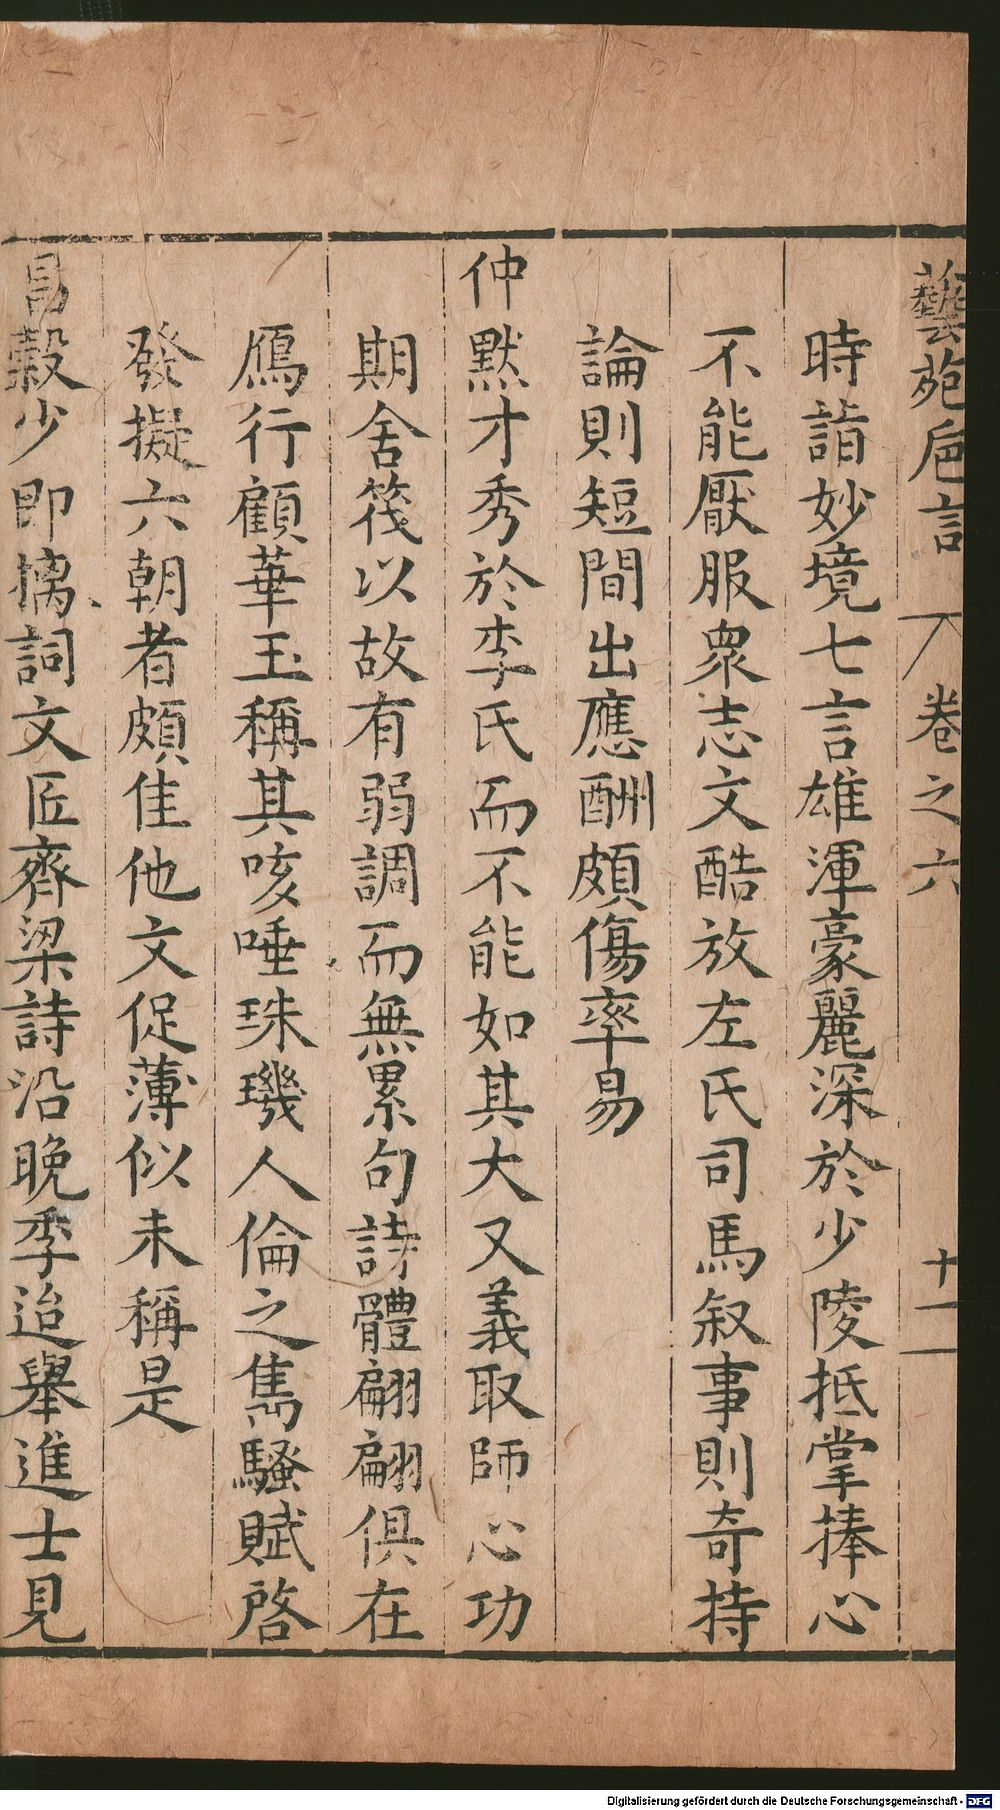 藝苑巵言 卷之六 十一
時詣妙境七言雄渾豪麗深於少陵抵掌捧心
不能厭服衆志文酷放左氏司馬叙事則奇持
論則短間出應酬頗傷率易
仲黙才秀於李氏而不能如其大又義取師心功
期舍筏以故有弱調而無累句詩體翩翩俱在
鴈行顧華玉稱其咳唾珠璣人倫之雋騷賦啓
發擬六朝者頗佳他文促薄似未稱是
昌糓少即摛詞文匠齊梁詩沿晩季迨舉進士見
Digitalisierung gefördert durch die Deutsche Forschungsgemeinschaft - DFG